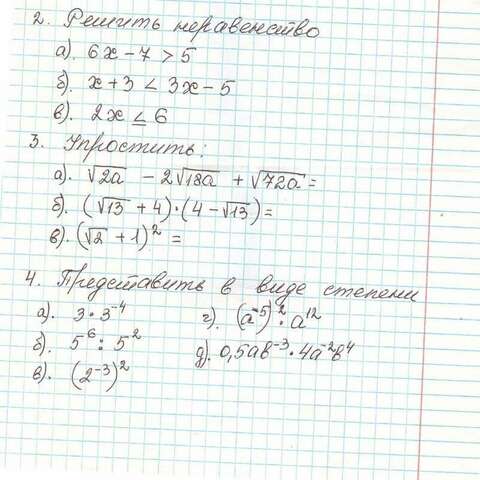 2. Решить неравенство
а). 6x – 7 > 5
б). x + 3 < 3x – 5
в). 2x ≤ 6
3. Упростить:
а). √2a – 2√18a + √72a =
б). (√13 + 4)·(4 – √13) =
в). (√2 + 1)² =
4. Представить в виде степени
а). 3·3⁻⁴
г). (a⁻⁵)²·a¹²
б). 5⁶ : 5²
д). 0,5ab⁻³·4a⁻²b⁴
в). (2⁻³)²